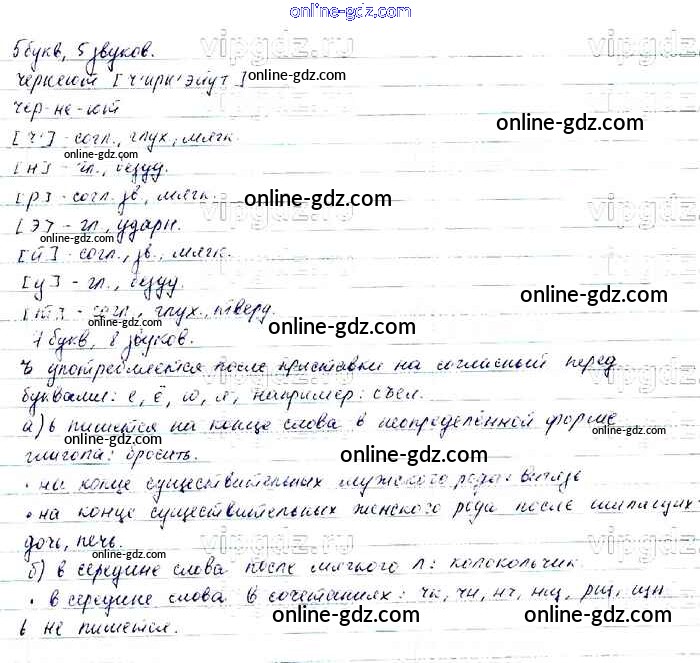 online-gdz.com
5 букв, 5 звуков.
чернеют [ч'ирн'эйут]
online-gdz.com
чер-не-ют
online-gdz.com
[ч'] - согл., глух., мягк.
online-gdz.com
[и] - гл., безуд.
[р] - согл. зв., мягк.
online-gdz.com
[э] - гл., ударн.
online-gdz.com
[й] - согл., зв., мягк.
[у] - гл., безуд.
online-gdz.com
[т] - согл., глух., тверд.
online-gdz.com
online-gdz.com
7 букв, 8 звуков.
ъ употребляется после приставки на согласный перед
буквами: е, ё, ю, я, например: съел.
а) ь пишется на конце слова в неопределённой форме
online-gdz.com
глагола: бросить.
online-gdz.com
• на конце существительных мужского рода: витязь
• на конце существительных женского рода после шипящих:
дочь, печь.
online-gdz.com
online-gdz.com
б) в середине слова после мягкого л: колокольчик.
• в середине слова в сочетаниях: чк, чн, нч, нщ, рщ, щн
ь не пишется.
online-gdz.com
online-gdz.com
vipgdz.ru
vipgdz.ru
vipgdz.ru
vipgdz.ru
vipgdz.ru
vipgdz.ru
vipgdz.ru
vipgdz.ru